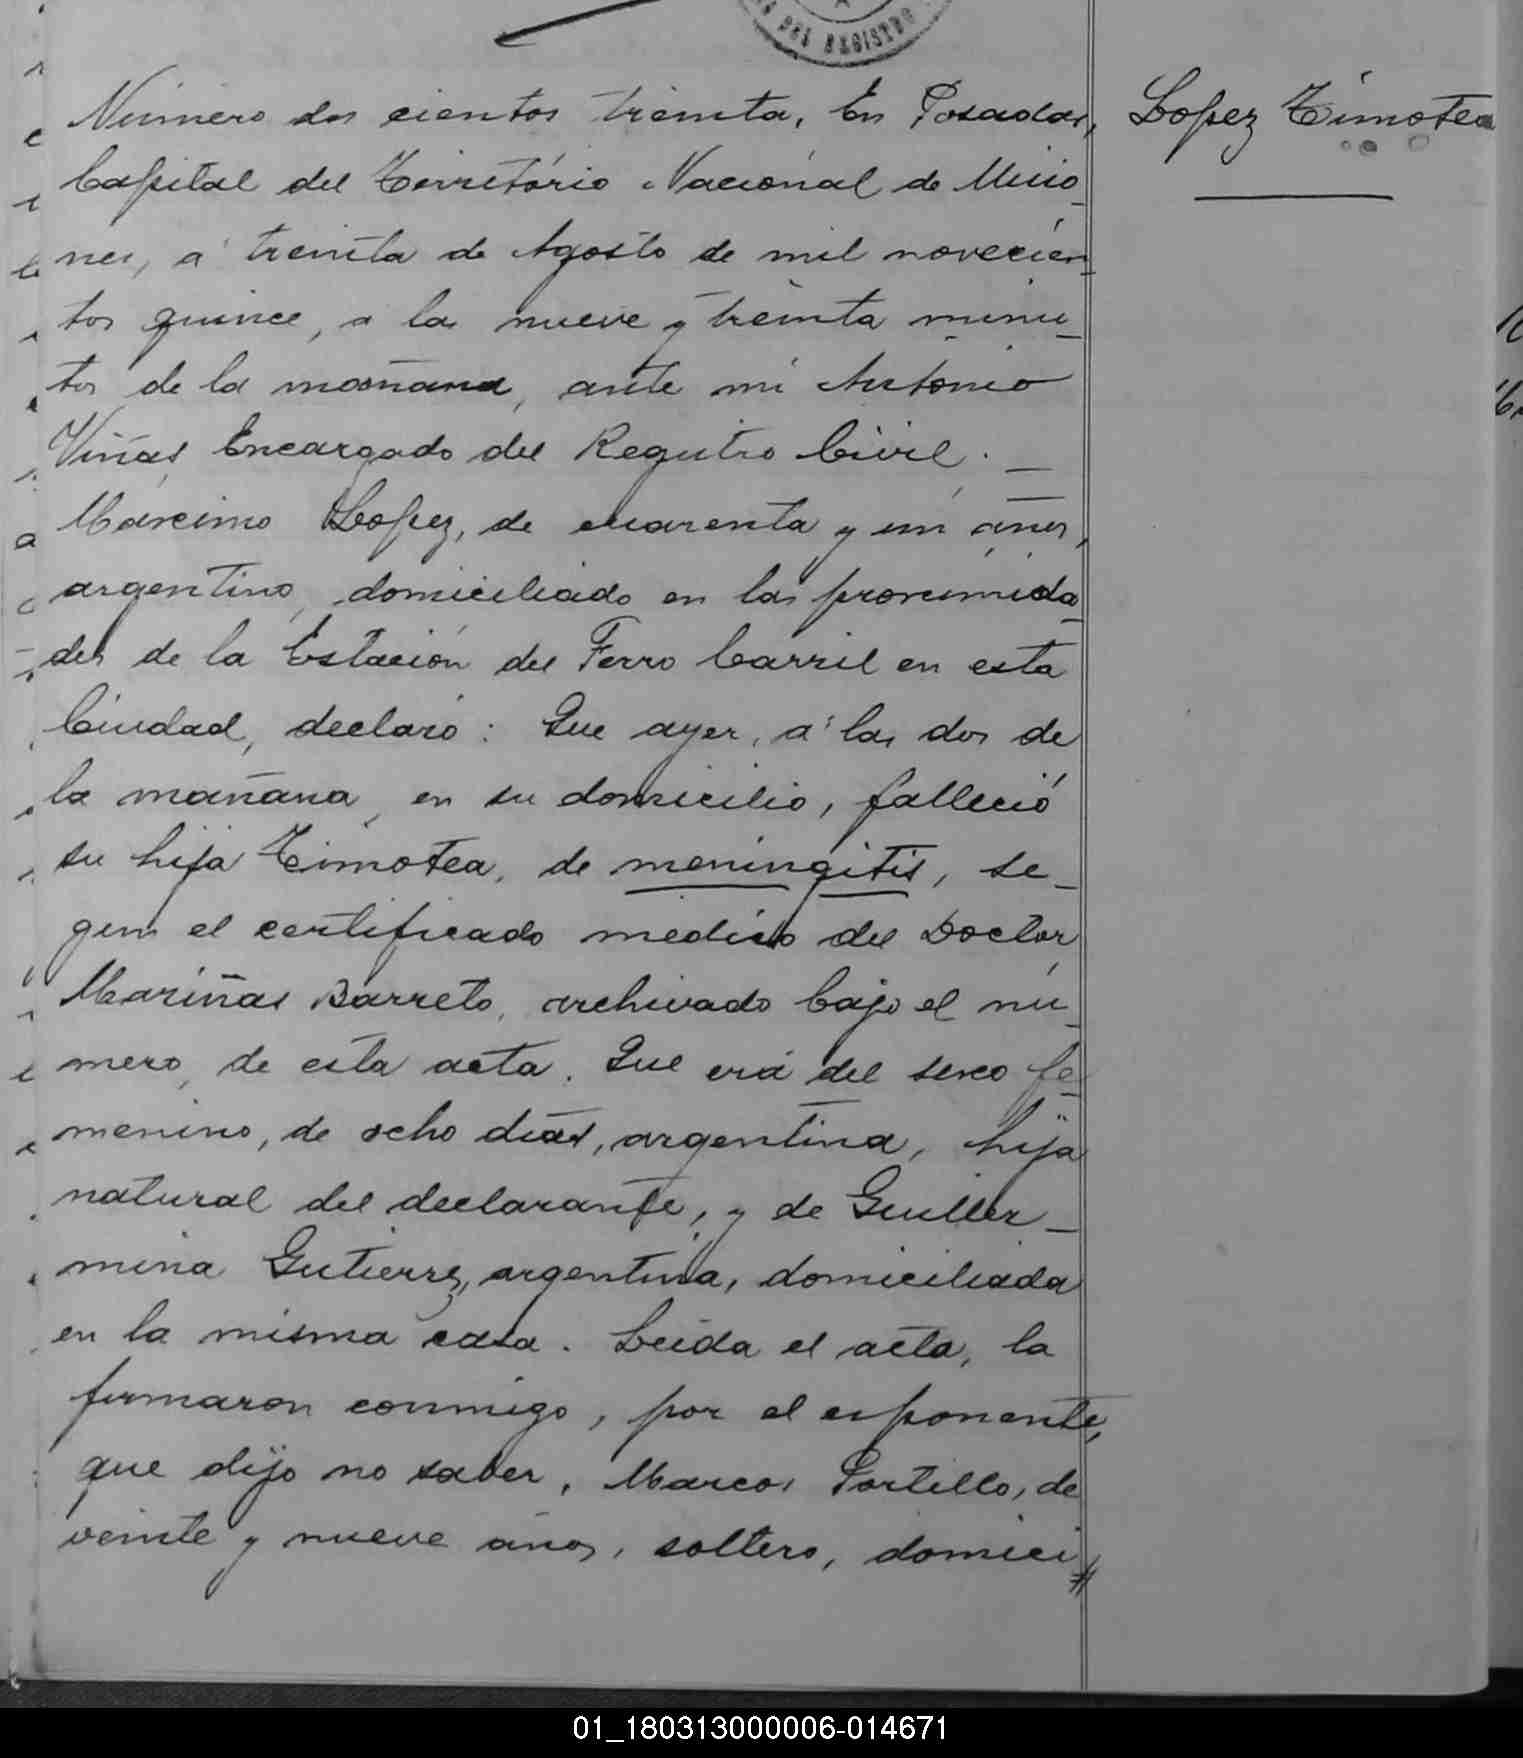 DEL REGISTRO
Número dos cientos treinta. En Posadas,
Capital del Territorio Nacional de Misio-
nes, a treinta de Agosto de mil novecien-
tos quince, a las nueve y treinta minu-
tos de la mañana, ante mi Antonio
Viñas, Encargado del Registro Civil. —
Márcimo Lopez, de cuarenta y un años,
argentino, domiciliado en las proximida-
des de la Estación del Ferro Carril en esta
Ciudad, declaró: Que ayer, á las dos de
la mañana, en su domicilio, falleció
su hija Timotea, de meningitis, se-
gun el certificado médico del Doctor
Mariñas Barreto, archivado bajo el nú-
mero de esta acta. Que era del sexo fe-
menino, de ocho días, argentina, hija
natural del declarante, y de Guiller-
mina Gutierrez, argentina, domiciliada
en la misma casa. Leída el acta, la
firmaron conmigo, por el esponente,
que dijo no saber, Marcos Portillo, de
veinte y nueve años, soltero, domici//
Lopez Timotea
01_180313000006-014671